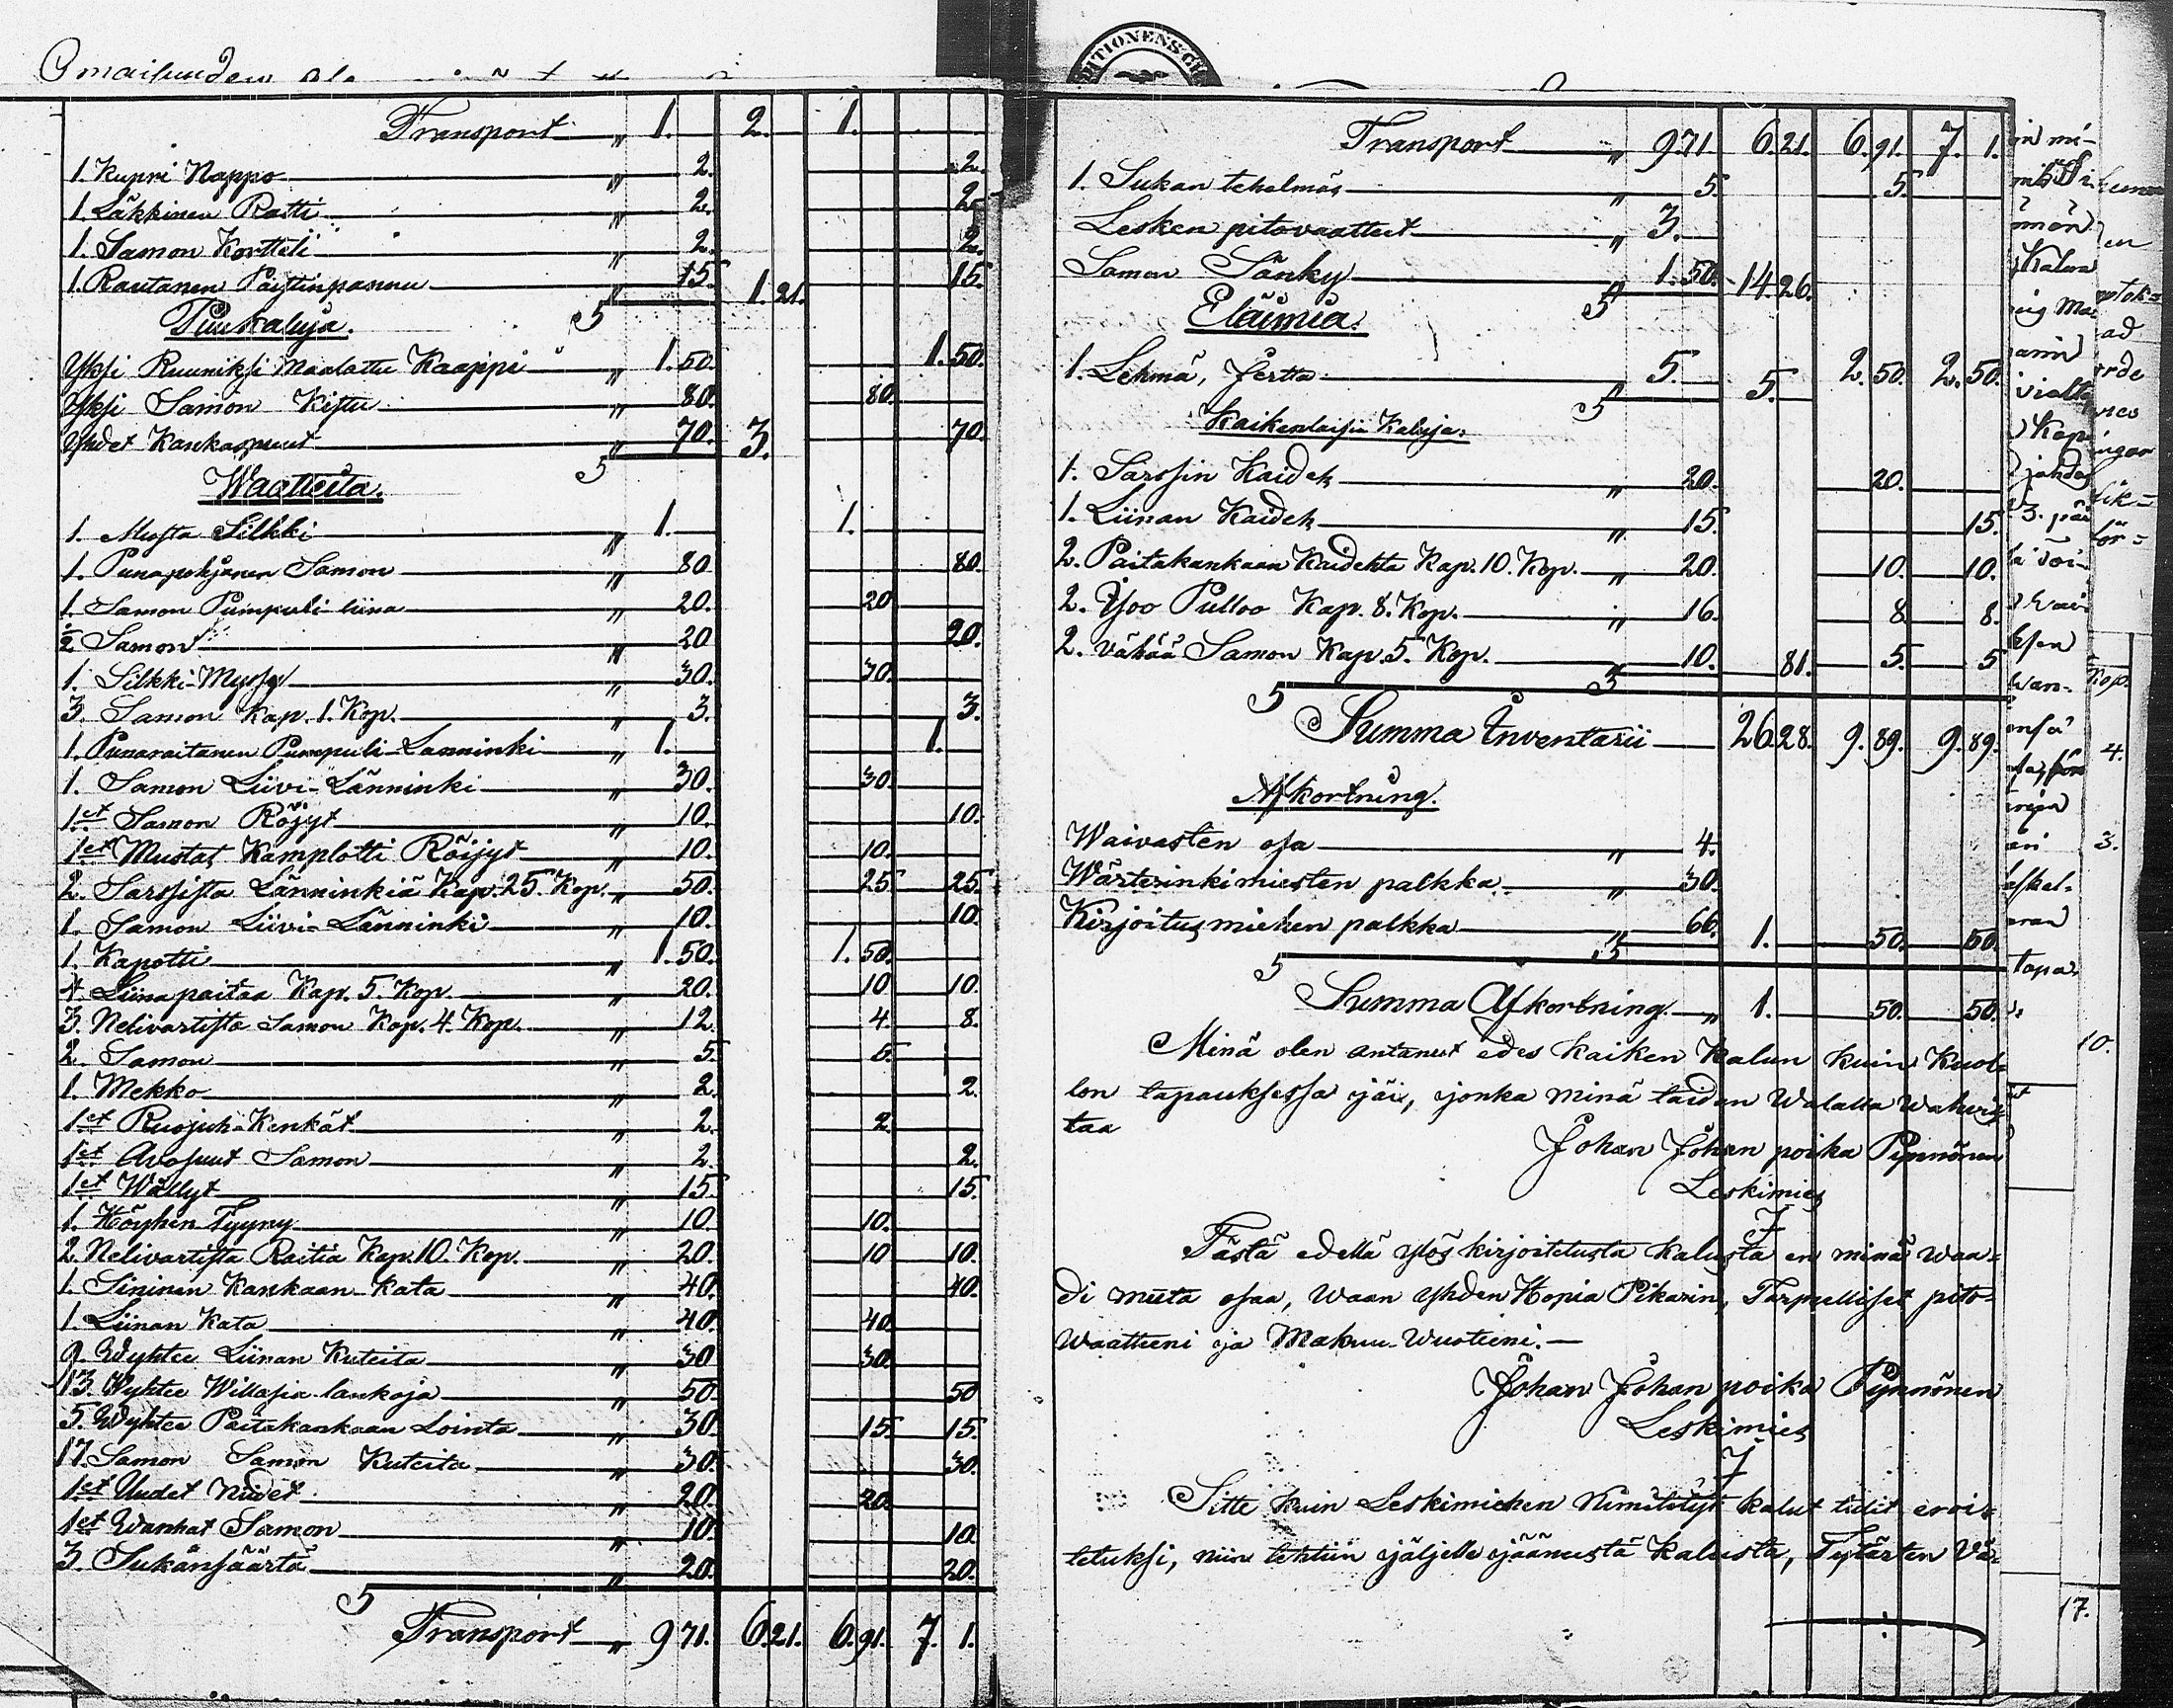 Omaisuuden
Transport „ 1. 2. 1.
1. Kupri Nappo „ 2. 2.
1. Läkkinen Ratti „ 2. 2.
1. Samon Kortteli „ 2. 2.
1. Rautanen Päytinpannu „ 15. 1.21. 15.
Puukaluja.
Yksi Ruuniksi Maalattu Kaappi „ 1.50. 1.50.
Yksi Samon Kistu „ 80. 80.
Yhdet Kankaspuut „ 70. 3. 70.
Waatteita.
1. Musta Silkki „ 1. 1.
1. Punapohjanen Samon „ 80 80.
1. Samon Pumpuli liina „ 20. 20
2 Samon „ 20 20.
1. Silkki-Myssy „ 30. 30.
3. Samon Kap. 1. Kop. „ 3. 3.
1. Punaraitanen Pumpuli-Lanninki „ 1. 1.
1. Samon Liivi-Länninki „ 30. 30.
1et Samon Röijyt „ 10. 10.
1et Mustat Kamplotti Röijyt „ 10. 10.
2. Sarssista Länninkiä Kap. 25. Kop. „ 50. 25 25.
1. Samon Liivi-Länninki „ 10. 10.
1. Kapotti „ 1.50. 1.50.
4. Liinapaitaa Kap. 5. Kop. „ 20. 10 10.
3. Nelivartista Samon Kap. 4. Kop. „ 12. 4. 8.
2. Samon „ 5. 5.
1. Mekko „ 2. 2.
1et Ruojuh-Kenkät „ 2. 2.
1et Avosuut Samon „ 2. 2.
1et Wällyt „ 15. 15.
1. Höyhen Tyyny „ 10. 10.
2. Nelivartista Raitia Kap. 10. Kop. „ 20. 10 10.
1. Sininen Kankaan Kata „ 40. 40.
1. Liinan Kata „ 40. 40.
9. Wyhtee Liinan Kuteita „ 30 30.
13. Wyhtee Willasia lankoja „ 50. 50
5. Wyhtee Paitakankaan Lointa „ 30. 15. 15.
17. Samon Samon Kuteita „ 30. 30.
1et Uudet Niidet „ 20. 20.
1et Wanhat Samon „ 10. 10.
3. Sukänsäärtä „ 20. 20.
Transport „ 9 71. 6.21. 6.91. 7. 1.
Transport „ 9.71. 6.21. 6.91. 7. 1.
1. Sukan tehelmäs „ 5. 5.
Lesken pitovaatteet „ 3.
Samon Sänky „ 1.50. 14.26.
Eläimiä.
1. Lehmä, Jertta 5. 5. 2.50. 2.50.
Kaikenlaisia Kaluja.
1. Sarssin Kaideh „ 20. 20.
1. Liinan Kaideh „ 15. 15.
2. Paitakankaan Kaidehta Kap. 10. Kop. „ 20. 10. 10.
2. Isoo Pulloo Kap. 8. Kop. „ 16. 8. 8.
2. vähää Samon Kap. 5. Kop. 10. 81. 5. 5
Summa Inventarii 26.28. 9.89. 9.89.
Afkortning.
Waivasten osa „ 4.
Wärterinkimiesten palkka „ 30.
Kirjoitusmiehen palkka „ 66. 1. 50. 50.
Summa Afkortning „ 1. 50. 50.
Minä olen antanut edes kaiken kalun kuin Kuol-
lon tapauksessa jäi, jonka minä taidan Walalla Wahvis-
taa
Johan Johan poika Pynnönen
Leskimies
Tästä edellä ylöskirjoitetusta kalusta en minä waa-
di muta osaa, waan yhden Hopia Pikarin, Tarpeelliset pito-
waatteeni ja Makuu-Wuoteeni.—
Johan Johan poika Pynnönen
Leskimies
Sitte kuin Leskimiehen Nimitetyt kalut tulit eroi-
tetuksi, niin tehtiin jäljelle jäänestä kalusta, Tytärten vä-